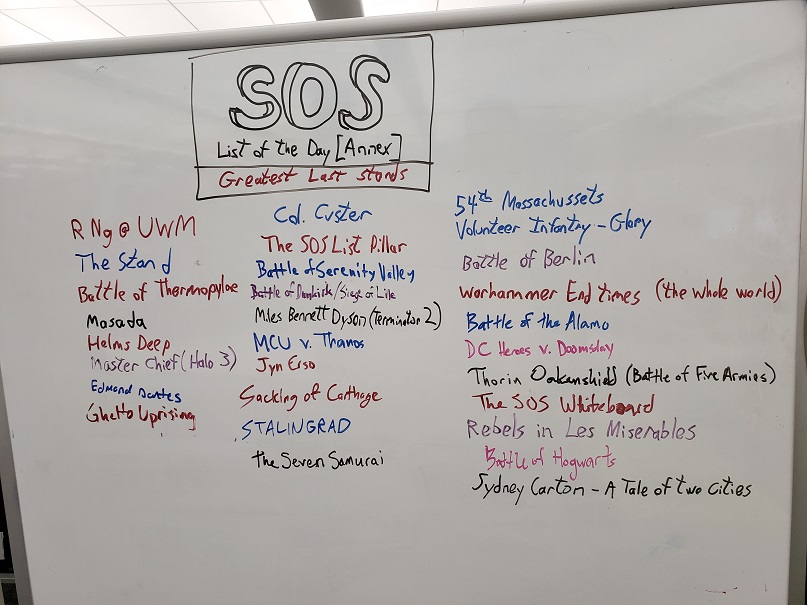 SOS
List of the Day [Annex]
Greatest Last Stands
RNg @ UWM
The Stand
Battle of Thermopylae
Masada
Helms Deep
Master Chief (Halo 3)
Edmond Dantes
Ghetto Uprising
Col. Custer
The SOS List Pillar
Battle of Serenity Valley
Battle of Dunkirk/Siege of Lile
Miles Bennett Dyson (Terminator 2)
MCU v. Thanos
Jyn Erso
Sacking of Carthage
STALINGRAD
The Seven Samurai
54th Massachussets
Volunteer Infantry - Glory
Battle of Berlin
Warhammer End times (the whole world)
Battle of the Alamo
DC Heroes v. Doomsday
Thorin Oakenshield (Battle of Five Armies)
The SOS Whiteboard
Rebels in Les Miserables
Battle of Hogwarts
Sydney Carton - A Tale of two Cities